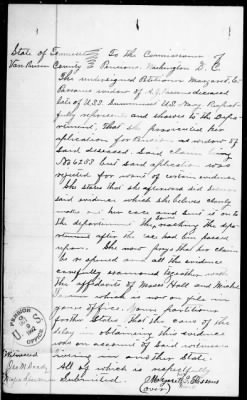 State of Tennessee To the Commissioner of
Van Buren County Pensions Washington D. C.
The undersigned Petitioner Margaret, E,
Parsons widow of A. J. Parsons deceased
late of U.S.S. U.S. Navy Respect
fully represent and showes to the Depa
rtment, That she presented her
application for Pension as widow of
Said deceased Said claim being
No 6288 but said application was
rejected for want of certain evidence
She states that she afterward did secure
said evidence which she believes clearly
makes out her case and sent it on to
the department. The reaching the depa
rtment after the case had been passed
upon. She now prays that her claim
be re opened and all the evidence
carefully examined together with
the affidavits of Moses Hall and
which is now on file in
your office. Your petitioner
further States that the cause of the
delay in obtaining this evidence
was on account of Said witnesses
living in another State.
All of which is respectfully
Submitted.
Margaret E. Parsons
(over)
Witnessed
PENSION OFFICE
U S